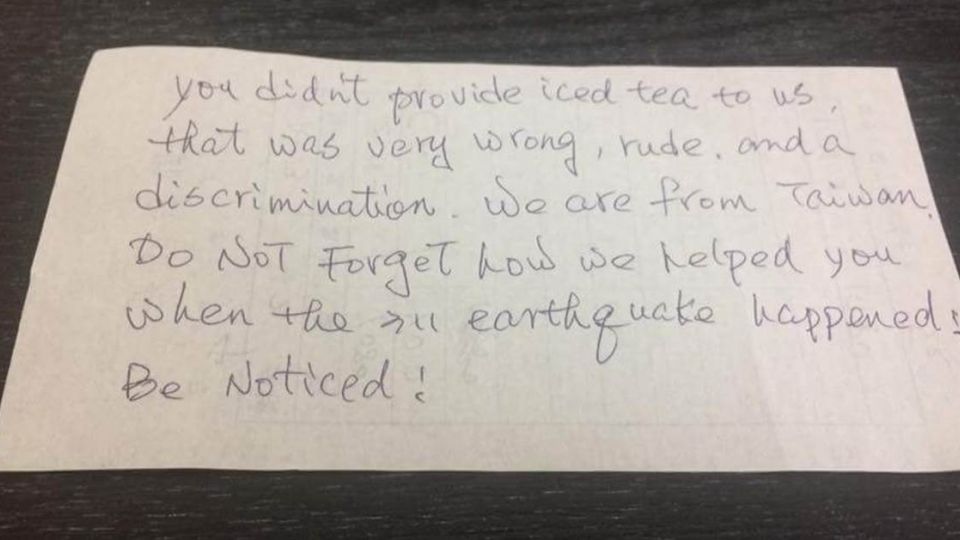 you didn't provide iced tea to us,
that was very wrong, rude, and a
discrimination. We are from Taiwan.
Do NOT Forget how we helped you
when the 311 earthquake happened!
Be Noticed!